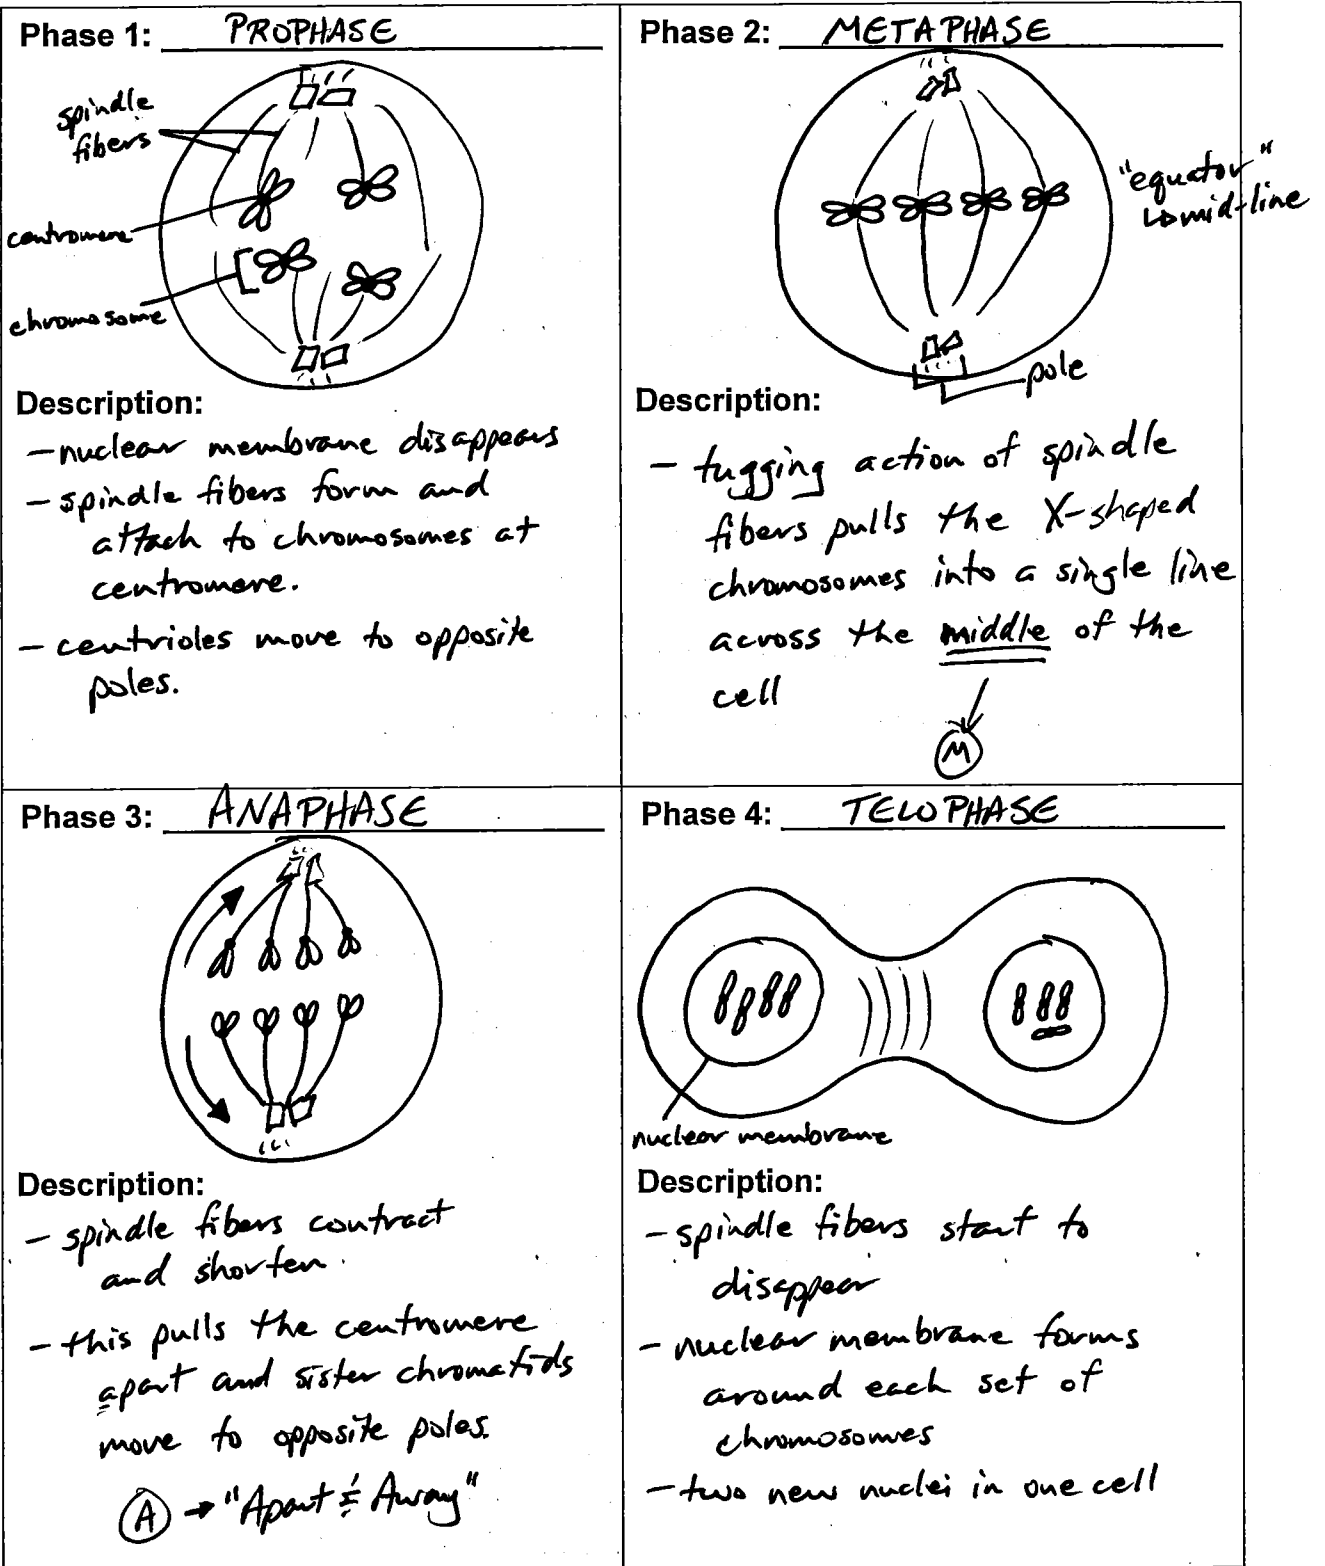 Phase 1: PROPHASE
spindle
fibers
centromere
chromosome
Description:
- nuclear membrane disappears
- spindle fibers form and
attach to chromosomes at
centromere.
- centrioles move to opposite
poles.
Phase 2: METAPHASE
"equator"
↳ mid-line
pole
Description:
- tugging action of spindle
fibers pulls the X-shaped
chromosomes into a single line
across the middle of the
cell
M
Phase 3: ANAPHASE
Description:
- spindle fibers contract
and shorten.
- this pulls the centromere
apart and sister chromatids
move to opposite poles.
A → "Apart & Away"
Phase 4: TELOPHASE
nuclear membrane
Description:
- spindle fibers start to
disappear
- nuclear membrane forms
around each set of
chromosomes
- two new nuclei in one cell